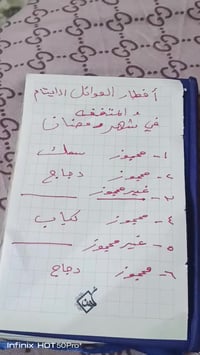 أفطار العوائل الايتام
المتعففه
في شهر رمضان
١- محجوز سمك
٢- محجوز دجاج
٣- غير محجوز
٤- محجوز كباب
٥- غير محجوز
٦- محجوز دجاج
Infinix HOT 50 Pro+